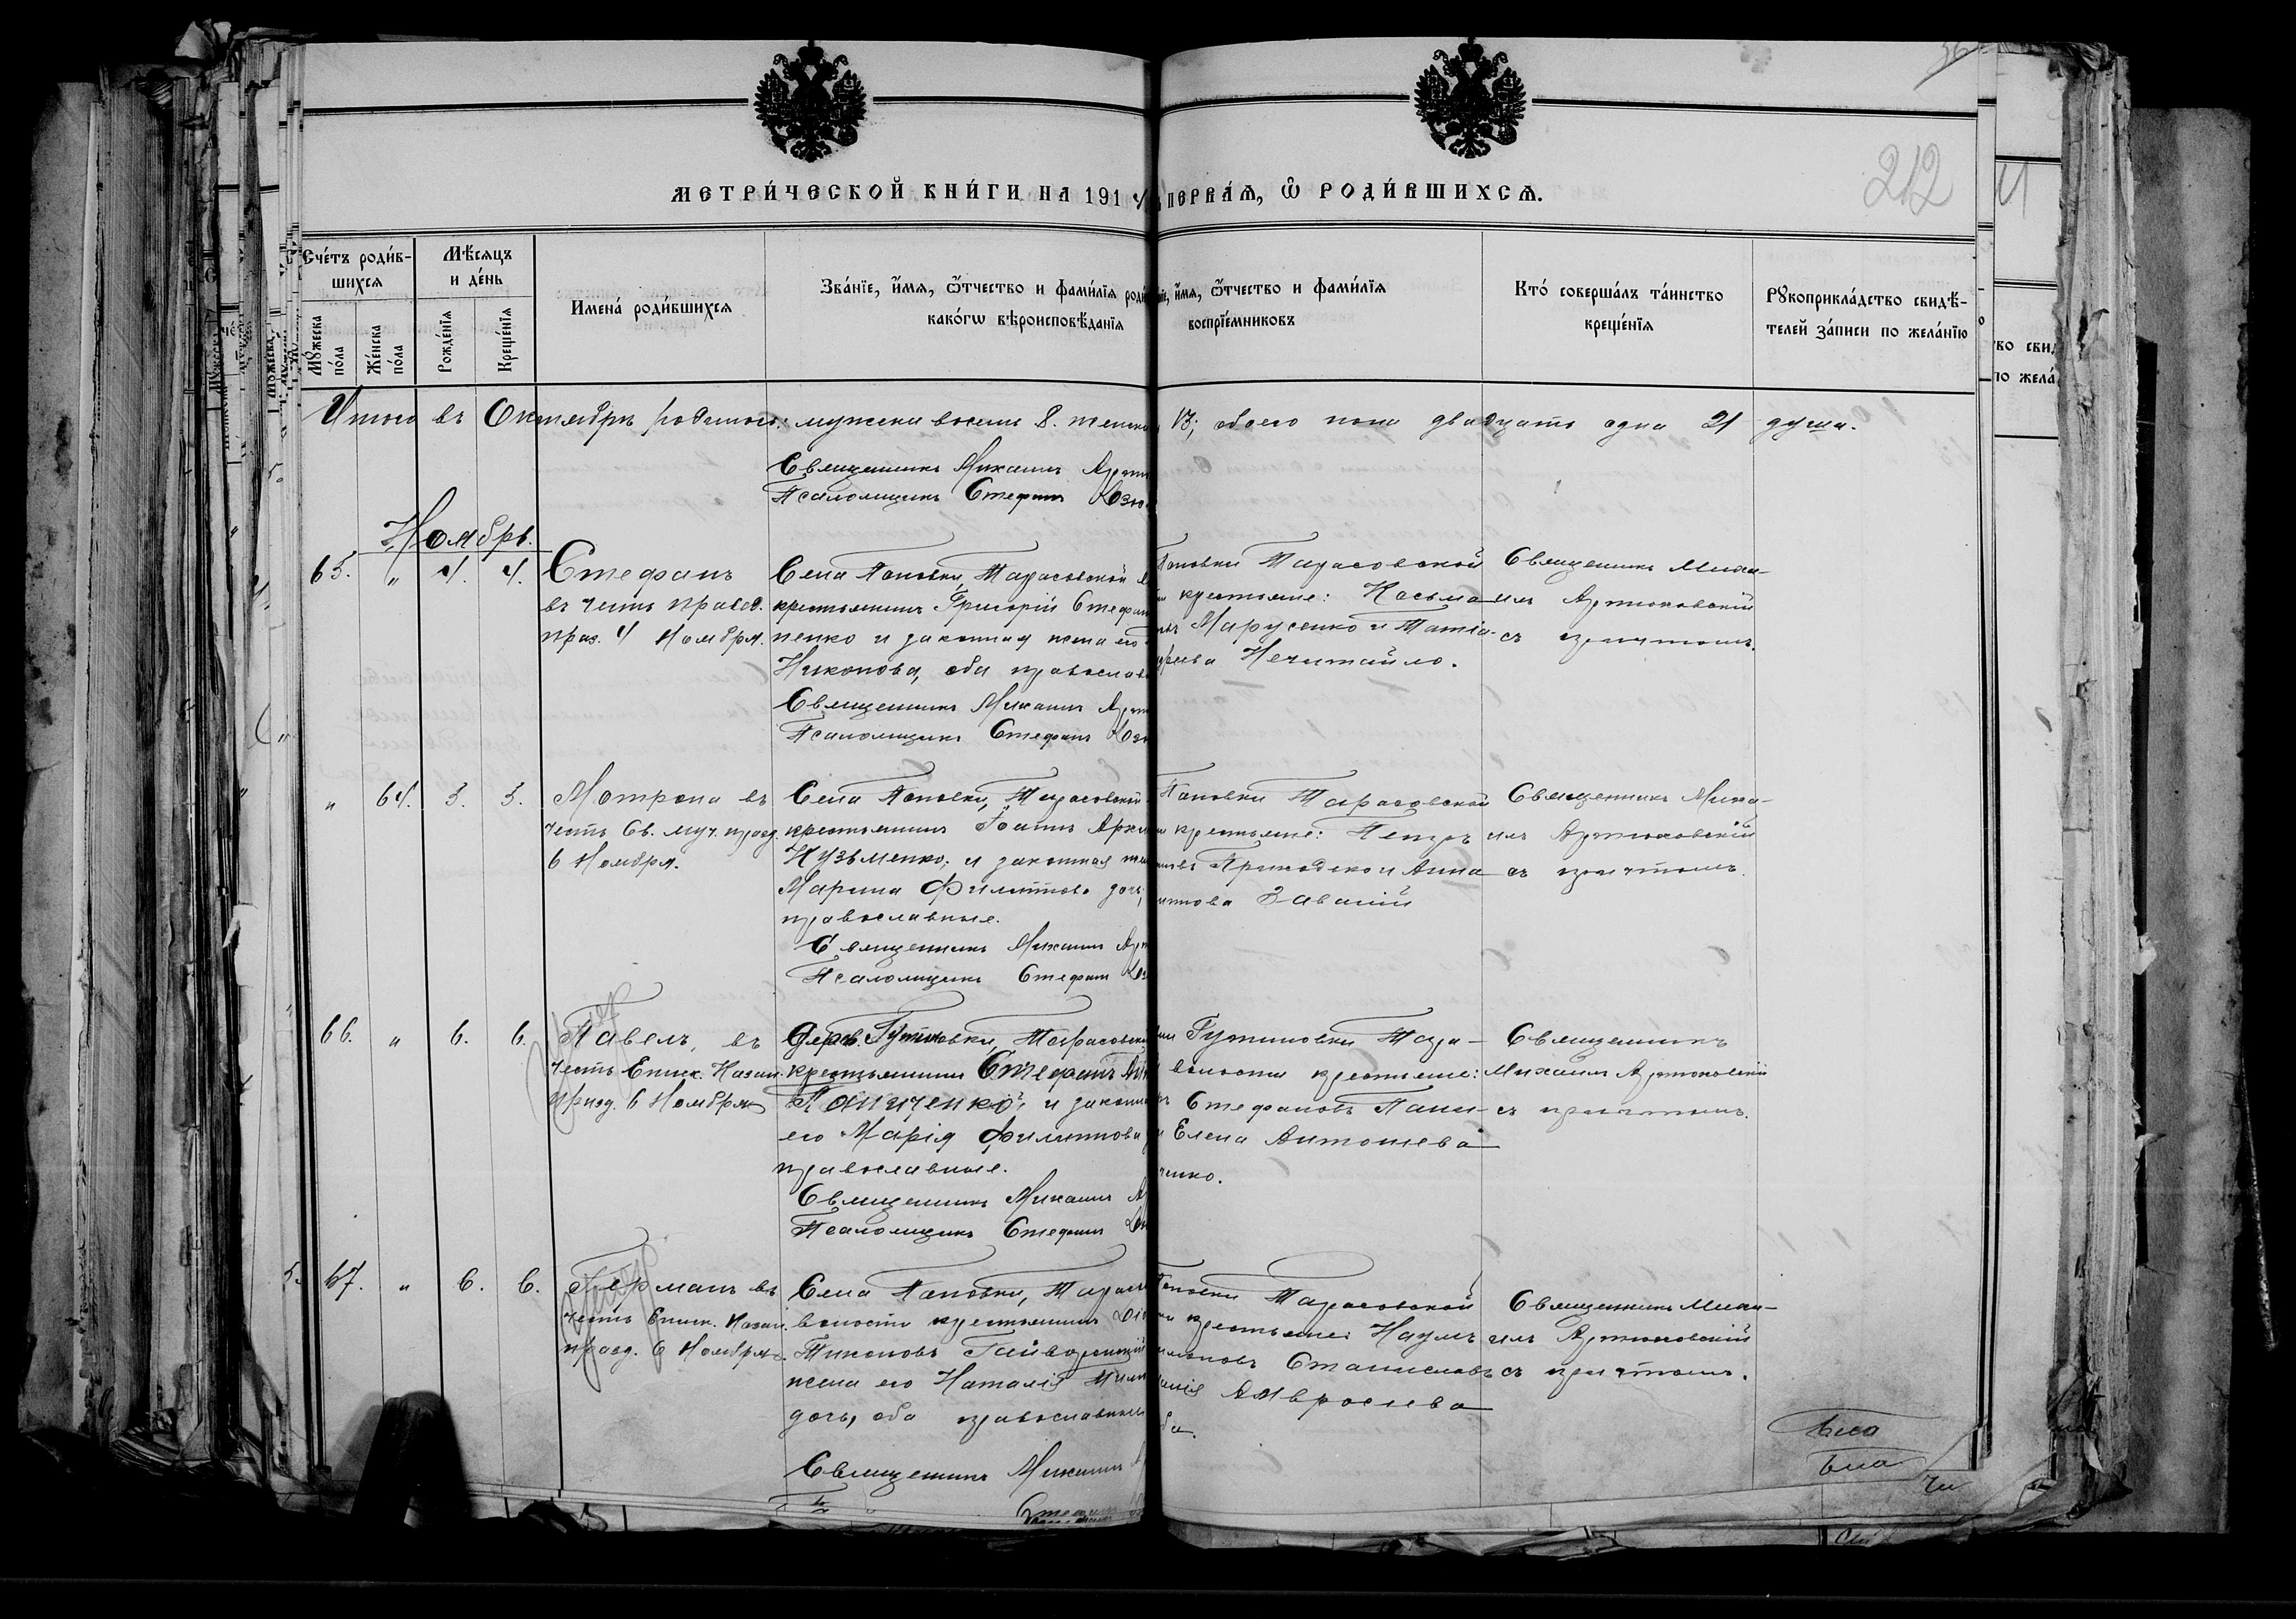 36
212
МЕТРИ́ЧЕСКОЙ КНИ́ГИ НА 1914 ПЕРВАЯ, Ѿ РОДИ́ВШИХСЯ.
Сче́тъ роди́в-
шихся
Мѣ́сяцъ
и де́нь
Мꙋ́жеска
по́ла
Же́нска
по́ла
Рожде́нїя
Креще́нїя
Имена̀ роди́вшихся
Зва́нїе, и҆́мя, ѻ҆́тчество и фами́лїя роди
како́гѡ вѣроисповѣ́данїя
нїе, и҆́мя, ѻ҆́тчество и фами́лїя
воспрїе́мниковъ
Кто́ соверша́лъ та́инство
креще́нїя
Рꙋкоприкла́дство свидѣ́-
телей за́писи по жела́нїю
Итого въ Октябрѣ родилось: мужска восемь 8. женска 13; обоего пола двадцать одна 21 душа.
Священникъ Михаилъ
Псаломщикъ Стефанъ
Ноябрь.
65. „ 4. 4.
Стефанъ
въ честь
праз. 4 Ноября.
Села Поповки, Тарасовской
крестьянинъ Григорій Стефан
ненко и законная жена его
Никонова, оба православ
Священникъ Михаилъ
Псаломщикъ Стефанъ
Поповки Тарасовской
крестьяне: Косьма
Марусенко и Татіа-
Нечитайло.
Священникъ Миха-
илъ Артюховскій
съ причтомъ.
„ 64. 5. 5.
Мотрона въ
честь Св. муч. празд.
6 Ноября.
Села Поповки, Тарасовской
крестьянинъ Іоаннъ
Кузьменко и законная
Марина Филиппова дочь,
православные.
Священникъ Михаилъ
Псаломщикъ Стефанъ
Поповки Тарасовской
крестьяне: Петръ
Приходько и Анна
Завалій
Священникъ Миха-
илъ Артюховскій
съ причтомъ.
66. „ 6. 6.
Павелъ, въ
честь Еписк. Казан.
празд. 6 Ноября
Дерев. Гутиновки, Тарасовской
крестьянинъ Стефанъ
Паниченко, и законн
его Марія Филиппова
православные.
Священникъ Михаилъ
Псаломщикъ Стефанъ
Гутиновки Тара-
волости крестьяне:
Стефановъ Пани-
Елена Антоніева
ченко.
Священникъ
Михаилъ Артюховскій
съ причтомъ.
67. „ 6. 6.
Германъ въ
честь Еписк. Казан.
празд. 6 Ноября.
Села Поповки, Тарасо
волости крестьянинъ
Тихоновъ Гайворонскій
жена его Наталія
дочь, оба православные
Священникъ Михаилъ
Поповки Тарасовской
крестьяне: Наумъ
Станиславъ
Амвросіева
ба.
Священникъ Миха-
илъ Артюховскій
съ причтомъ.